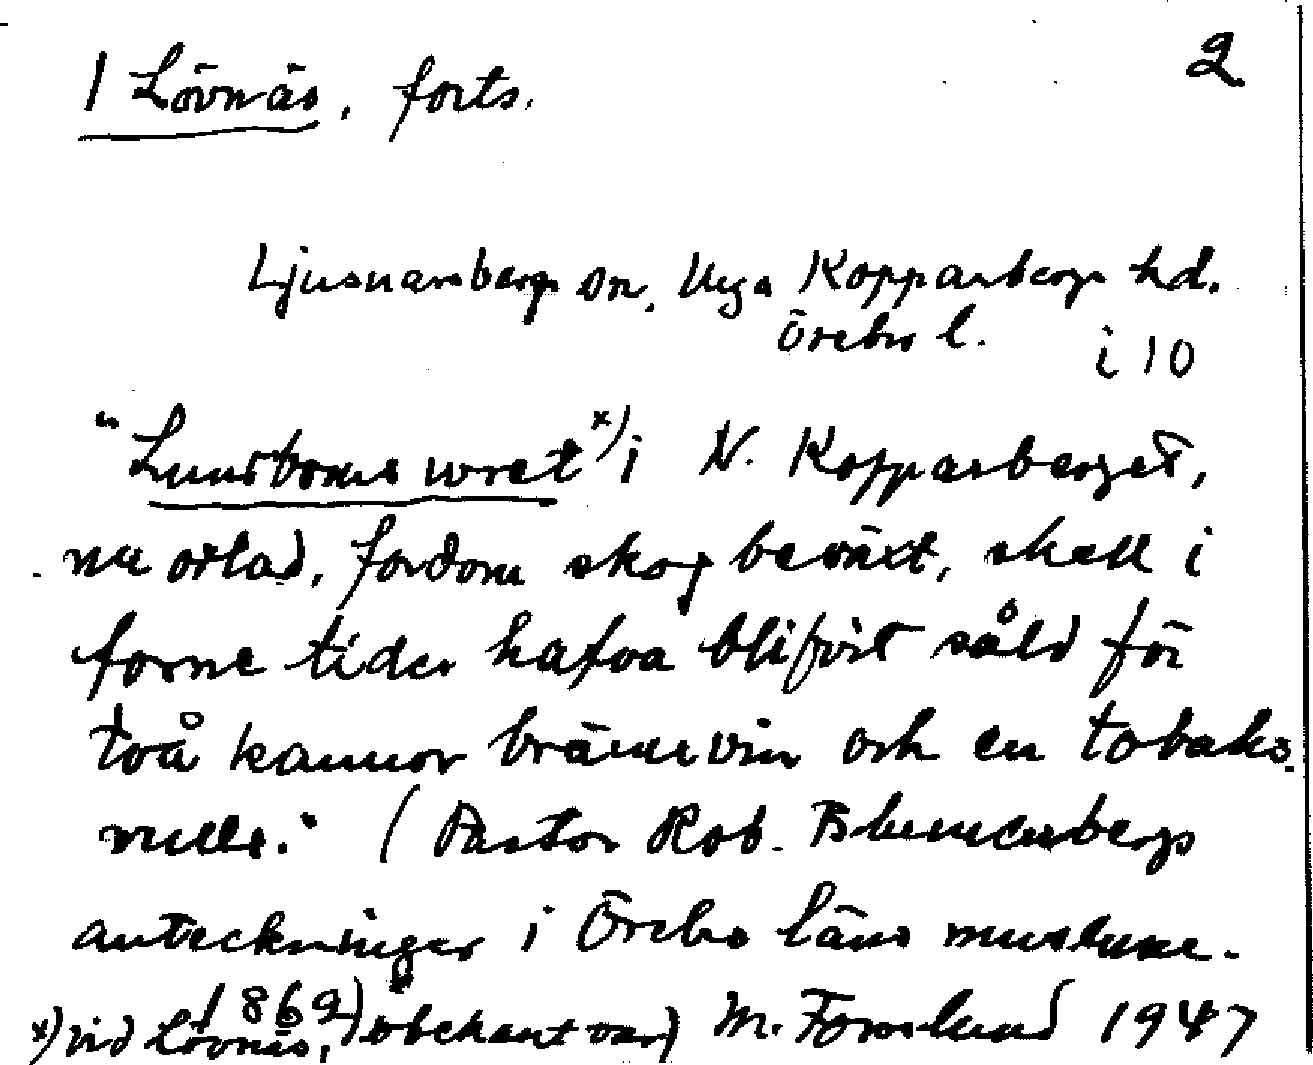 2
1 Lövnäs, forts.
Ljusnarsbergs sn. Nya Kopparbergs hd.
Örebro l. i 10
"Lundboms wret" x) i N. Kopparberget,
nu odlad, fordom skog beväxt, skall i
forne tider hafva blifvit såld för
två kannor brännvin och en tobaks
rulle." (Pastor Rob. Blumenbergs
anteckningar i Örebro läns museum.
1869)
x) vid Lövnäs, obekant var) M. Forslund 1947